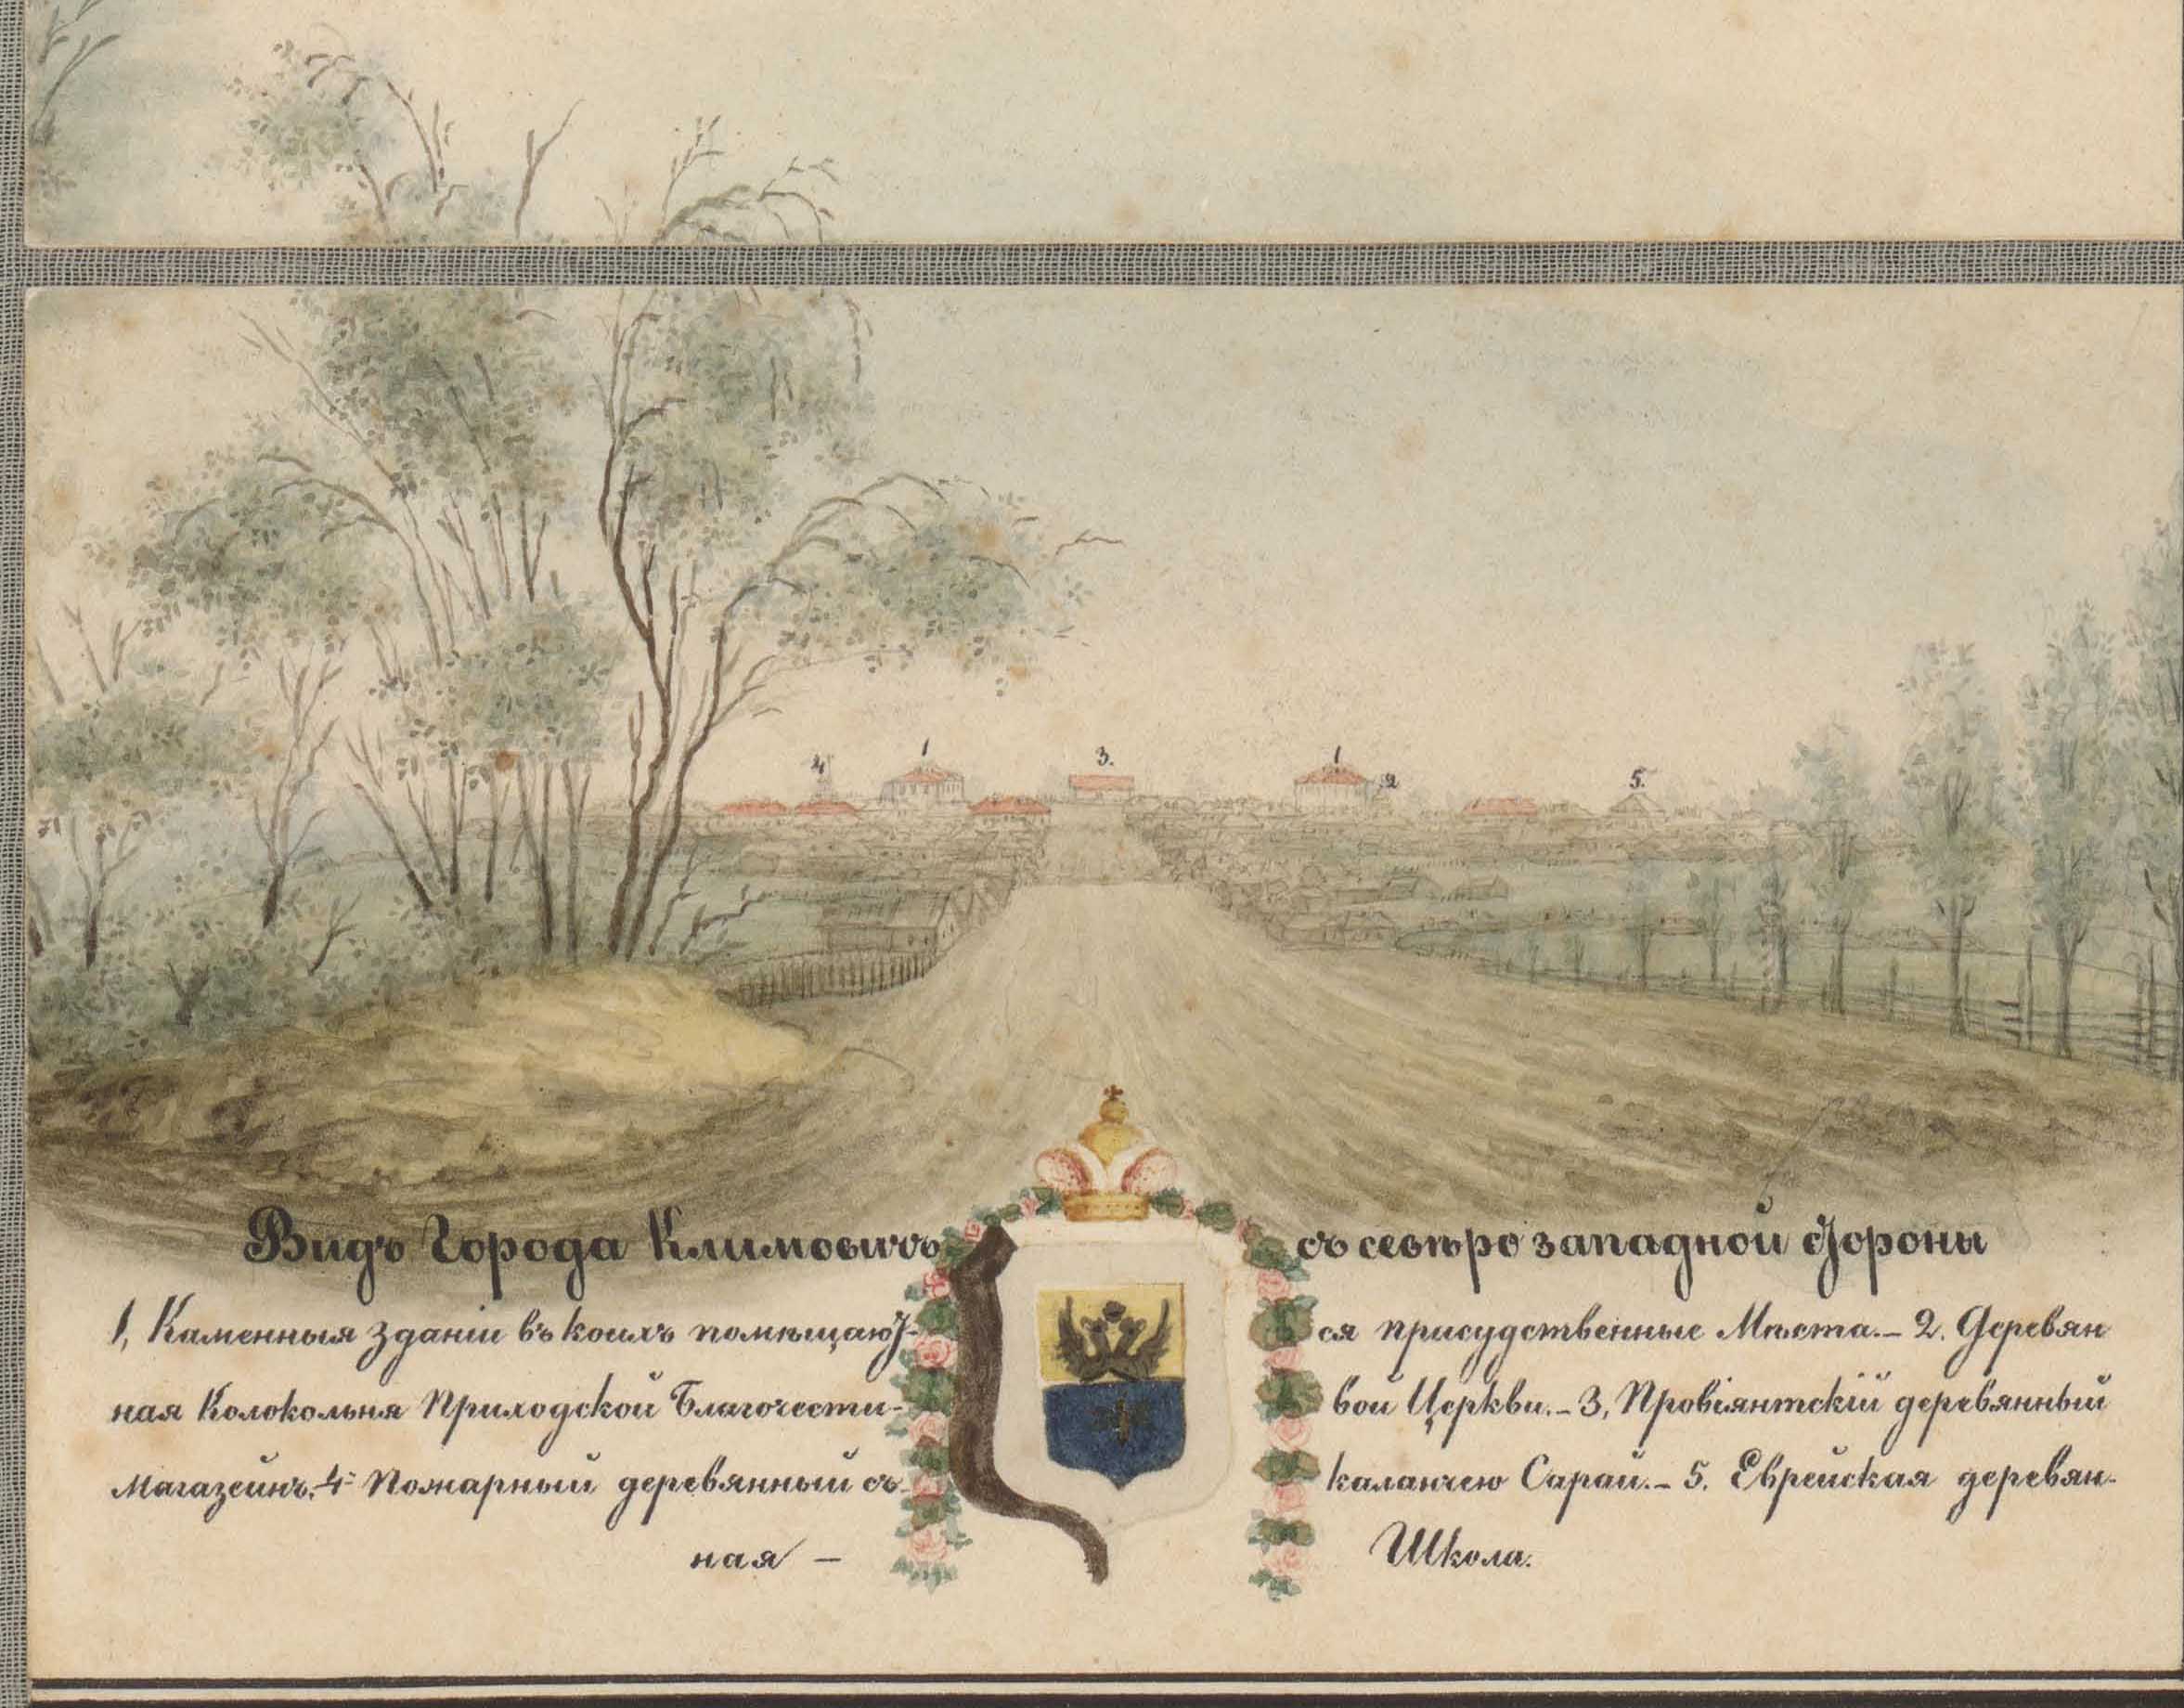 4 1 3. 1 2 5.
Видъ Города Климовичъ съ севѣро западной стороны
1, Каменныя зданіи въ коихъ помѣщают- ся присудственные Мѣста.– 2. Деревян
ная Колокольня Приходской Благочести- вой Церкви.– 3, Провіянтскій деревянный
Магазейнъ.–4 Пожарный деревянный съ каланчею Сарай.– 5. Еврейская деревян-
ная – Школа.